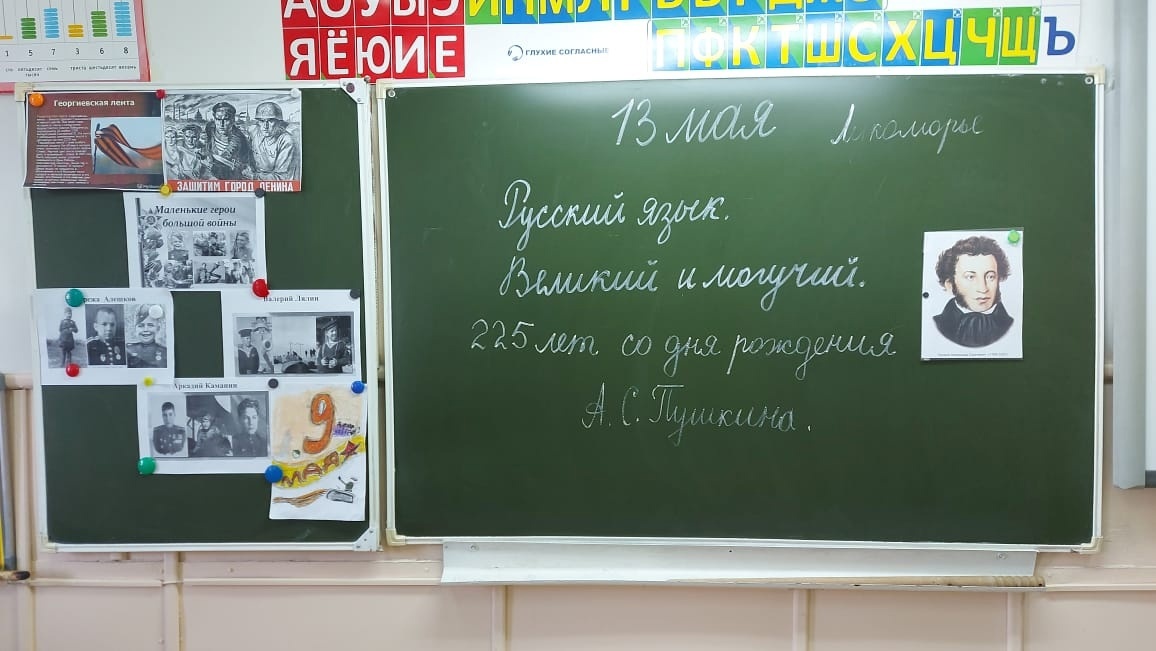 1 5 7 3 6 8
сто пятьдесят семь триста шестьдесят восемь
тысяч
ЯЁЮИЕ
ГЛУХИЕ СОГЛАСНЫЕ
ПФКТШСХЦЧЩЪ
Георгиевская лента
ЗАЩИТИМ ГОРОД ЛЕНИНА
Маленькие герои
большой войны
Алешков
Валерий Лялин
Аркадий Каманин
9
МАЯ
13 мая
Лукоморье
Русский язык.
Великий и могучий.
225 лет со дня рождения
А. С. Пушкина.